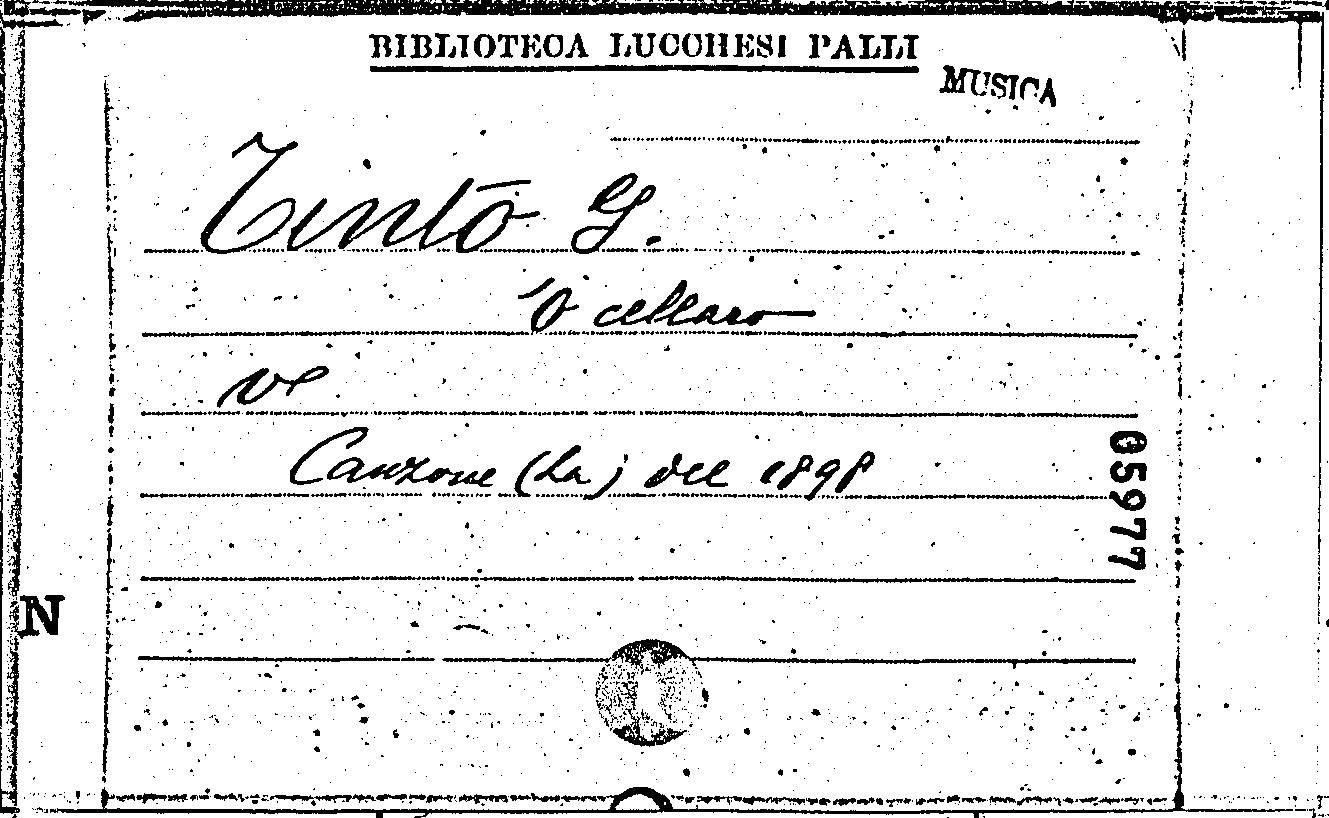 BIBLIOTECA LUCCHESI PALLI
MUSICA
Tinto G.
'O cellaro
ve
Canzone (La) del 1898
05977
N